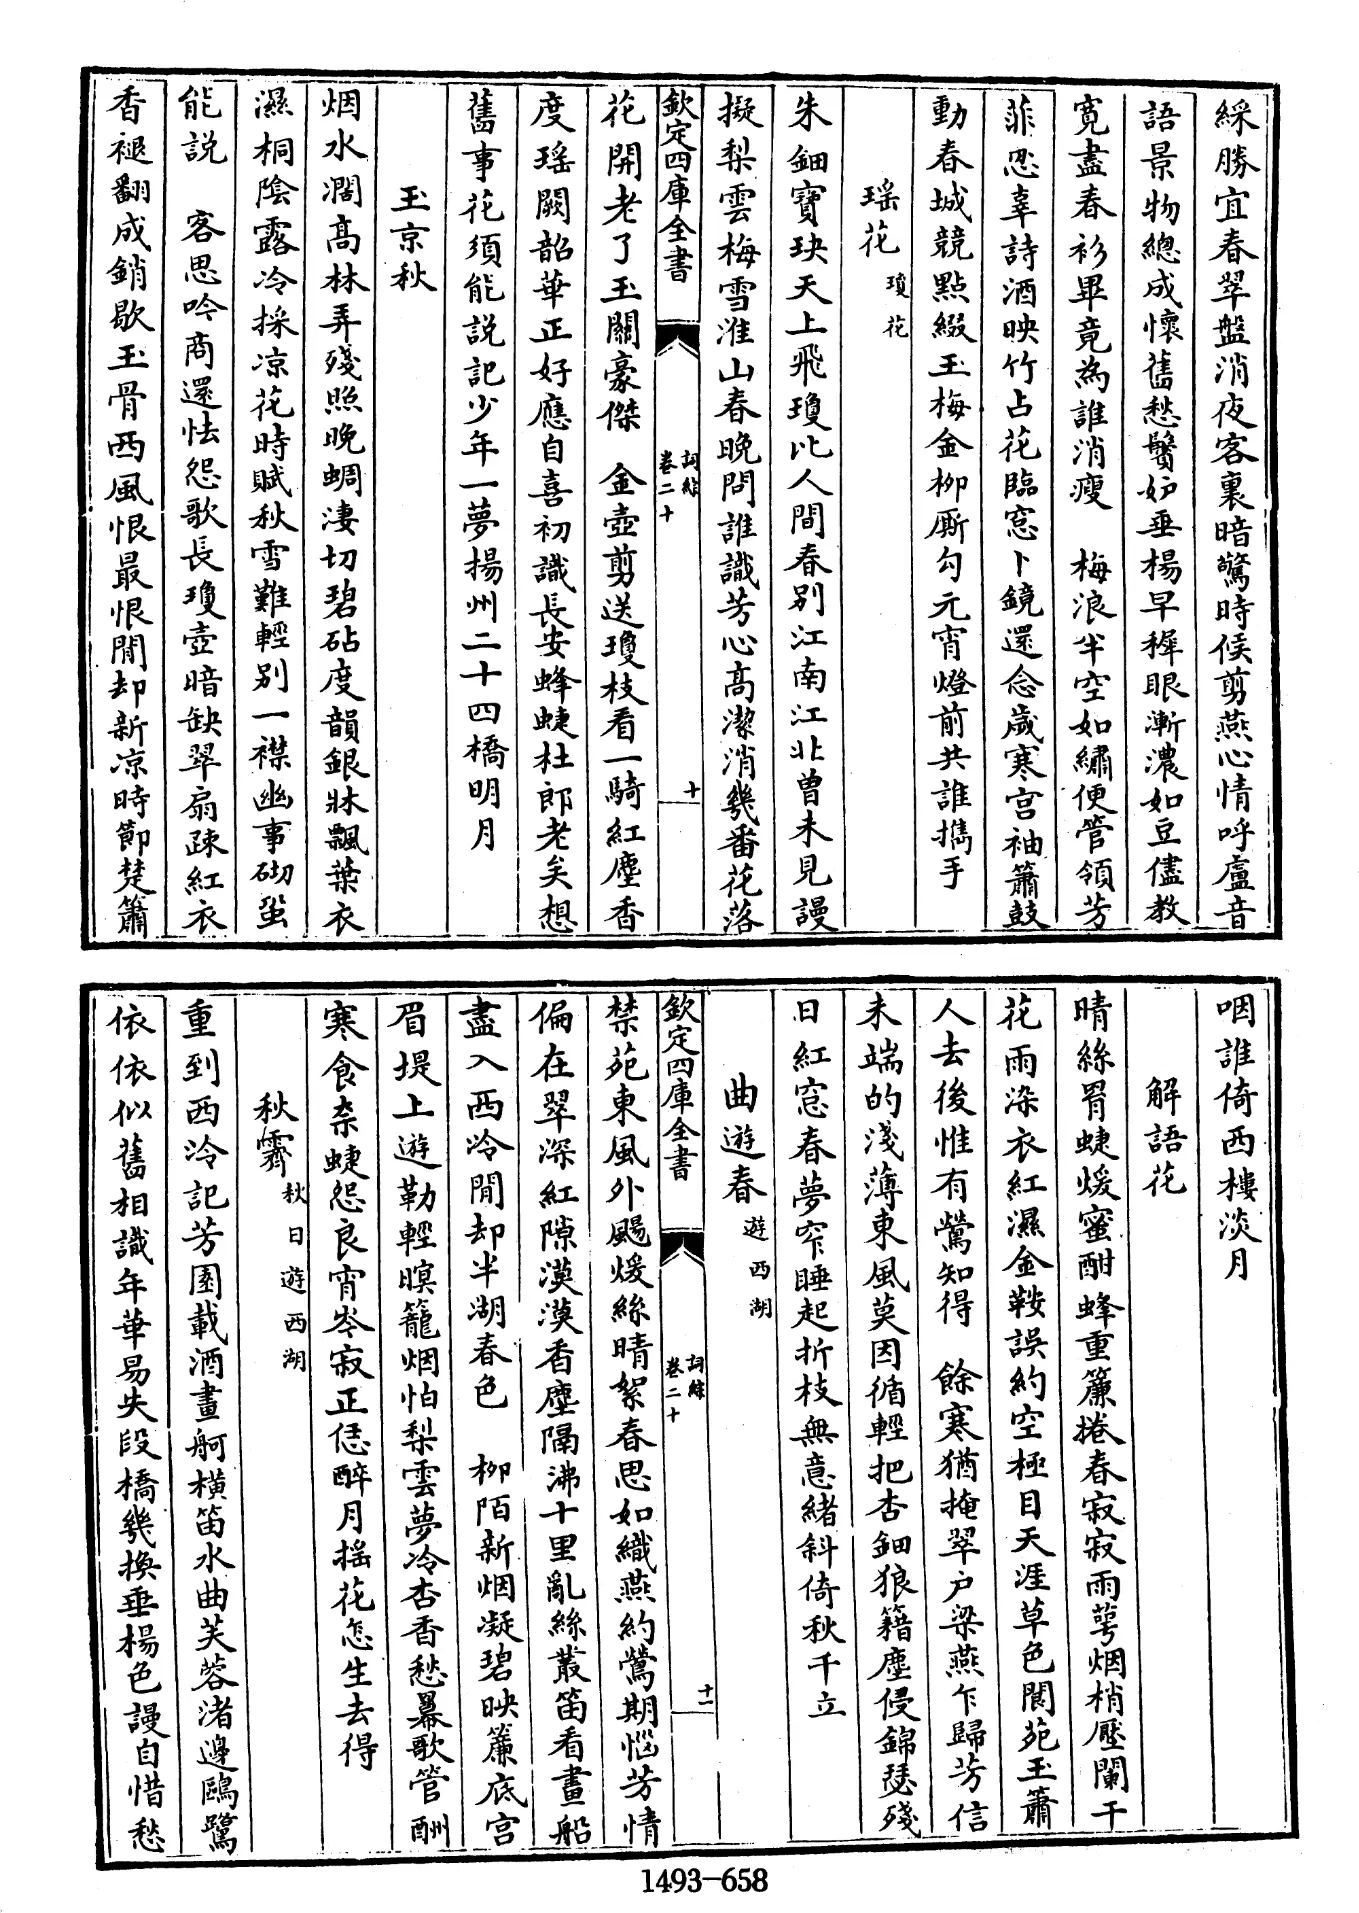 綵勝宜春翠盤消夜客裏暗驚時候剪燕心情呼盧音
語景物總成懷舊愁鬢妒垂楊早穉眼漸濃如豆儘教
寛盡春衫畢竟為誰消瘦　梅浪半空如繡便管領芳
菲忍辜詩酒映竹占花臨窓卜鏡還念歲寒宫袖簫鼓
動春城競點綴玉梅金柳厮勾元宵燈前共誰攜手
瑤花瓊花
朱鈿寶玦天上飛瓊比人間春别江南江北曾未見謾
擬梨雲梅雪淮山春晚問誰識芳心髙潔消幾番花落
欽定四庫全書
詞綜
卷二十
十
花開老了玉關豪傑　金壺剪送瓊枝看一騎紅塵香
度瑤闕韶華正好應自喜初識長安蜂蜨杜郎老矣想
舊事花須能説記少年一夢揚州二十四橋明月
玉京秋
烟水濶髙林弄殘照晚蜩淒切碧砧度韻銀牀飄葉衣
濕桐陰露冷採凉花時賦秋雪難輕别一襟幽事砌蛩
能説　客思吟商還怯怨歌長瓊壺暗缺翠扇疎紅衣
香褪翻成銷歇玉骨西風恨最恨閒却新凉時節楚簫
咽誰倚西樓淡月
解語花
晴絲罥蜨煖蜜酣蜂重簾捲春寂寂雨萼烟梢壓闌干
花雨染衣紅濕金鞍誤約空極目天涯草色閬苑玉簫
人去後惟有鶯知得　餘寒猶掩翠户梁燕乍歸芳信
未端的淺薄東風莫因循輕把杏鈿狼籍塵侵錦瑟殘
日紅窓春夢窄睡起折枝無意緒斜倚秋千立
曲遊春遊西湖
欽定四庫全書
詞綜
卷二十
十一
禁苑東風外颺煖絲晴絮春思如織燕約鶯期惱芳情
偏在翠深紅隙漠漠香塵隔沸十里亂絲叢笛看畫船
盡入西泠閒却半湖春色　柳陌新烟凝碧映簾底宫
眉堤上遊勒輕暝籠烟怕梨雲夢冷杏香愁羃歌管酬
寒食柰蜨怨良宵岑寂正恁醉月揺花怎生去得
秋霽秋日遊西湖
重到西泠記芳園載酒畫舸横笛水曲芙蓉渚邊鷗鷺
依依似舊相識年華易失段橋幾換垂楊色謾自惜愁
1493-658